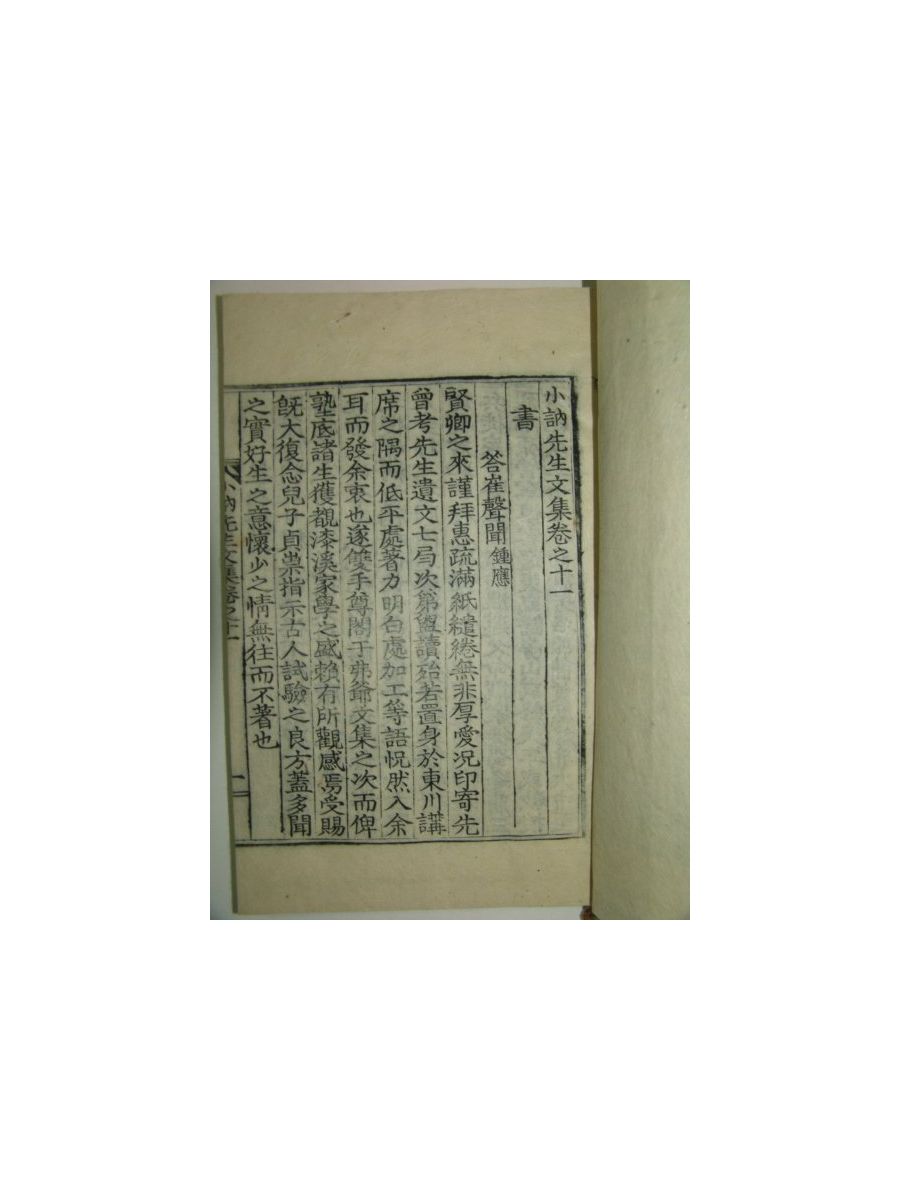 小訥先生文集卷之十一
書
答崔聲聞鍾應
賢卿之來謹拜惠疏滿紙繾綣無非厚愛况印寄先
曾考先生遺文七局次第盥讀殆若置身於東川講
席之隅而低平處著力明白處加工等語怳然入余
耳而發余衷也遂雙手尊閣于弗爺文集之次而俾
塾底諸生獲覩漆溪家學之盛賴有所觀感焉受賜
旣大復念兒子貞祟指示古人試驗之良方蓋多聞
之實好生之意懷少之情無往而不著也
小訥先生文集卷之十一
一